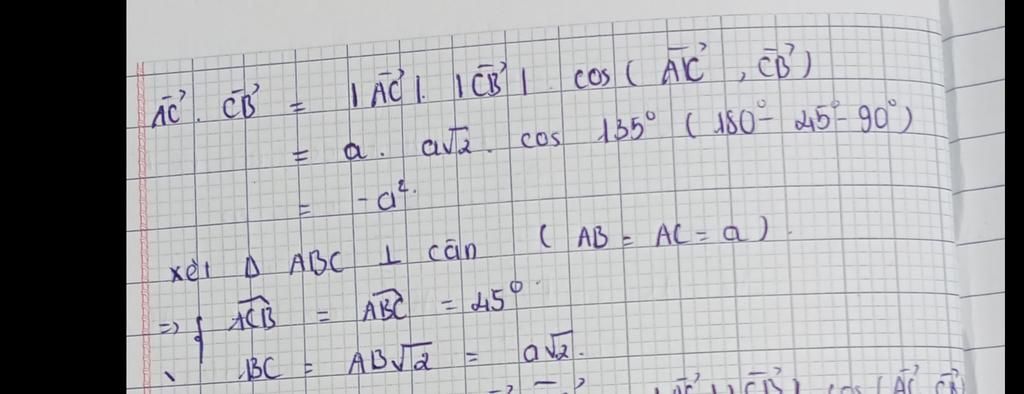 AC⃗ . CB⃗ = |AC⃗|. |CB⃗| . cos ( AC⃗ , CB⃗ )
= a . a√2 . cos 135° ( 180° - 45° - 90° )
= -a².
xét Δ ABC ⊥ cân ( AB = AC = a ).
=> { ACB = ABC = 45°.
BC = AB√2 = a√2.
| AC⃗ | | CB⃗ | cos ( AC⃗ CB⃗ )